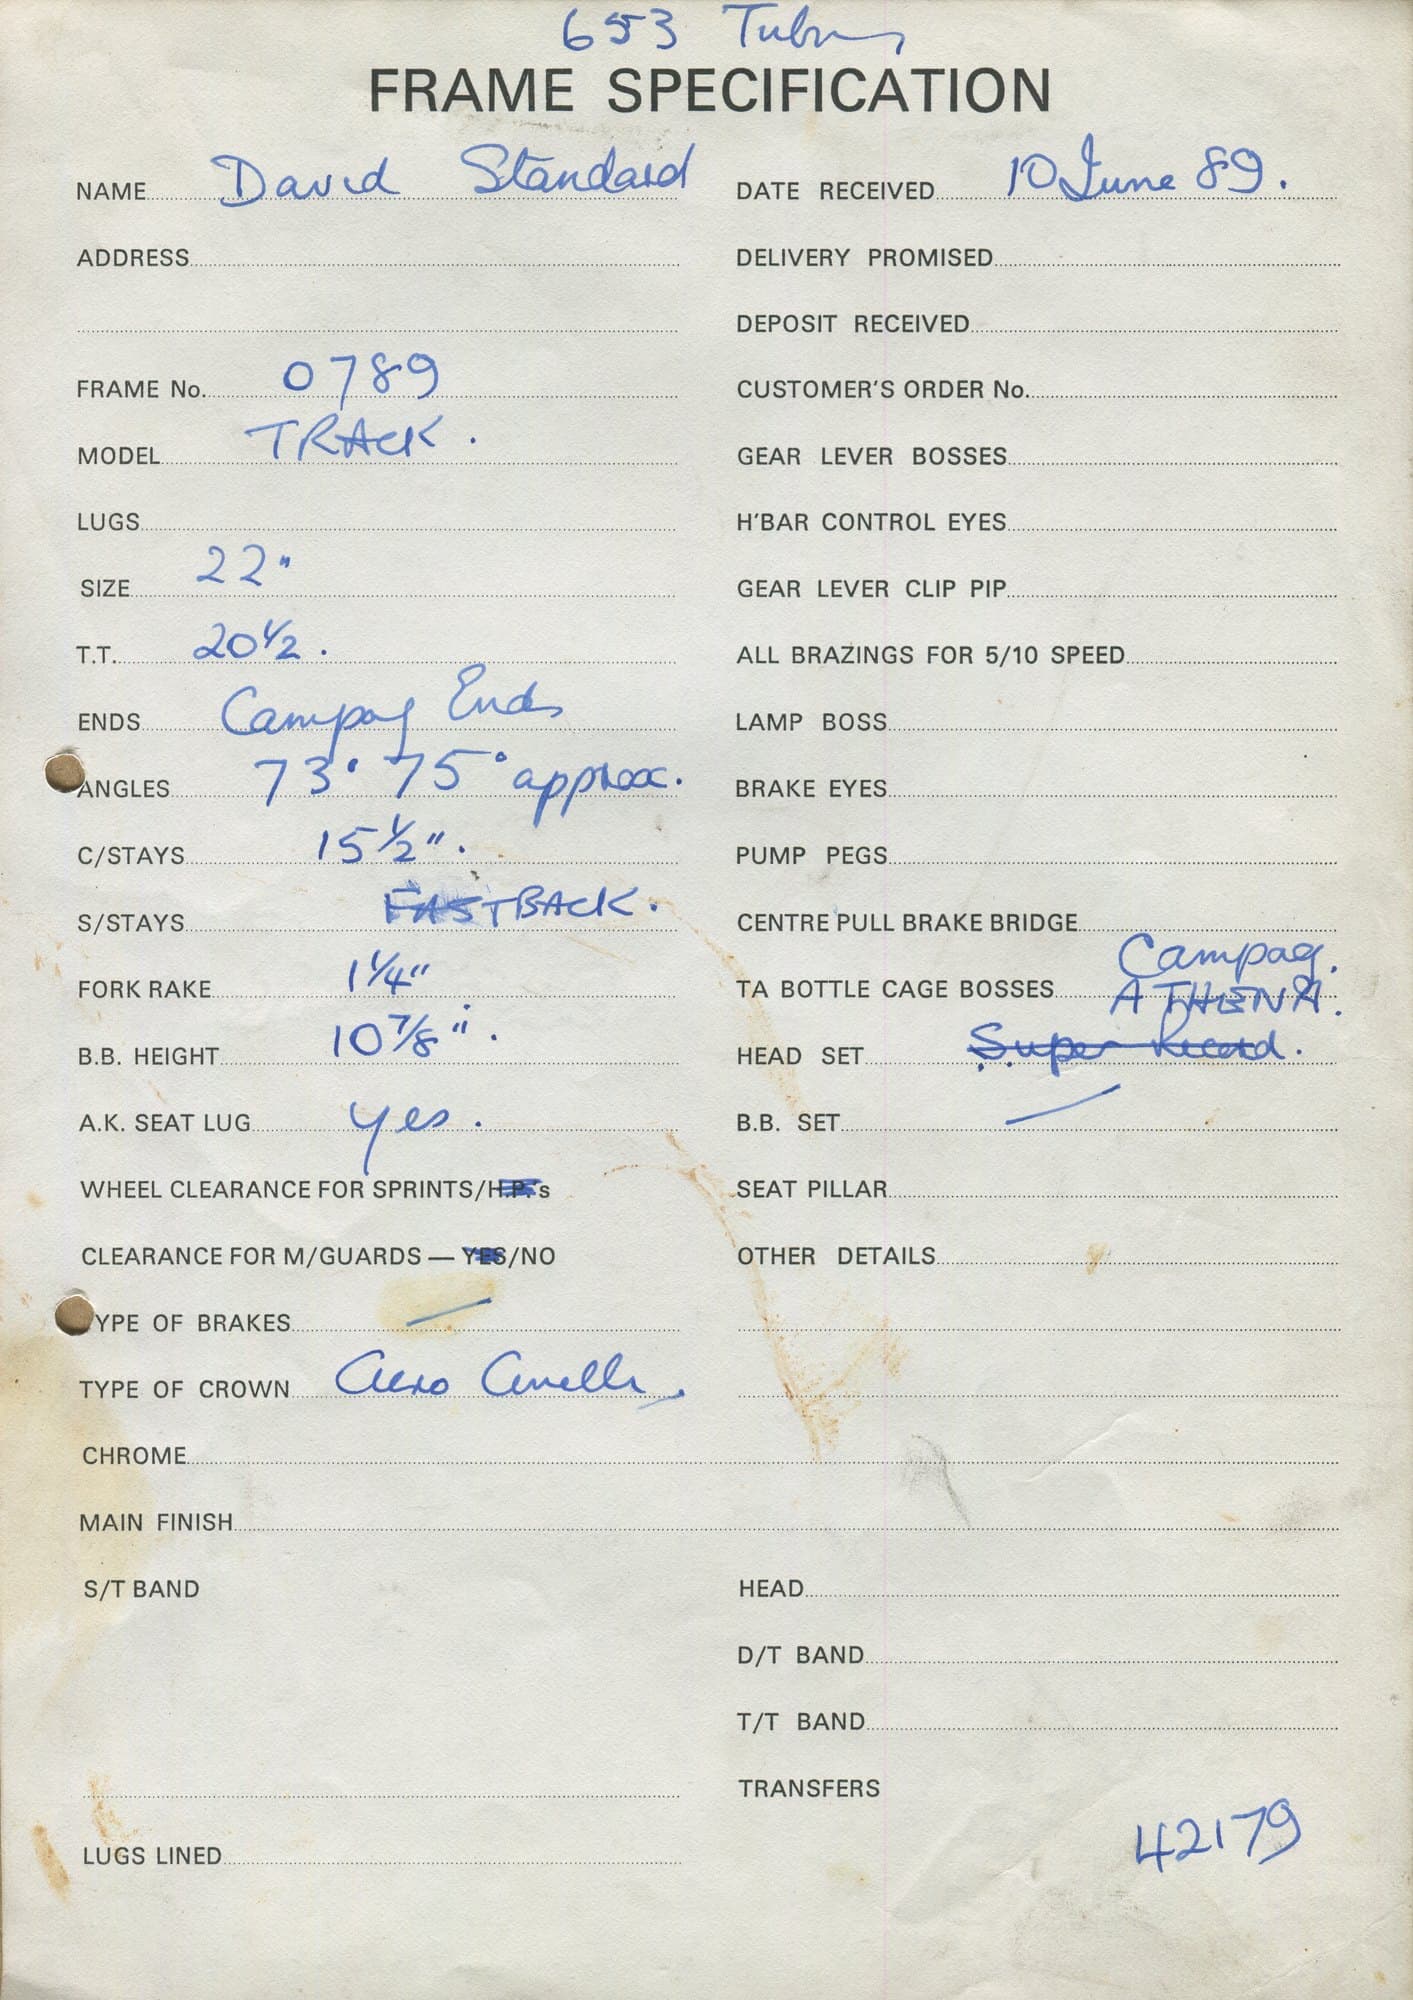 653 Tubing
FRAME SPECIFICATION
NAME David Standard
ADDRESS
FRAME No. 0789
MODEL TRACK.
LUGS
SIZE 22"
T.T. 20 1/2.
ENDS Campag Ends
ANGLES 73° 75° approx.
C/STAYS 15 1/2".
S/STAYS FASTBACK.
FORK RAKE 1 1/4"
B.B. HEIGHT 10 7/8".
A.K. SEAT LUG yes.
WHEEL CLEARANCE FOR SPRINTS/H.P.'s
CLEARANCE FOR M/GUARDS — YES/NO
TYPE OF BRAKES —
TYPE OF CROWN Aero Cinelli.
CHROME
MAIN FINISH
S/T BAND
LUGS LINED
DATE RECEIVED 10 June 89.
DELIVERY PROMISED
DEPOSIT RECEIVED
CUSTOMER'S ORDER No.
GEAR LEVER BOSSES
H'BAR CONTROL EYES
GEAR LEVER CLIP PIP
ALL BRAZINGS FOR 5/10 SPEED
LAMP BOSS
BRAKE EYES
PUMP PEGS
CENTRE PULL BRAKE BRIDGE
Campag.
TA BOTTLE CAGE BOSSES ATHENA.
HEAD SET Super Record.
B.B. SET —
SEAT PILLAR
OTHER DETAILS
HEAD
D/T BAND
T/T BAND
TRANSFERS
42179